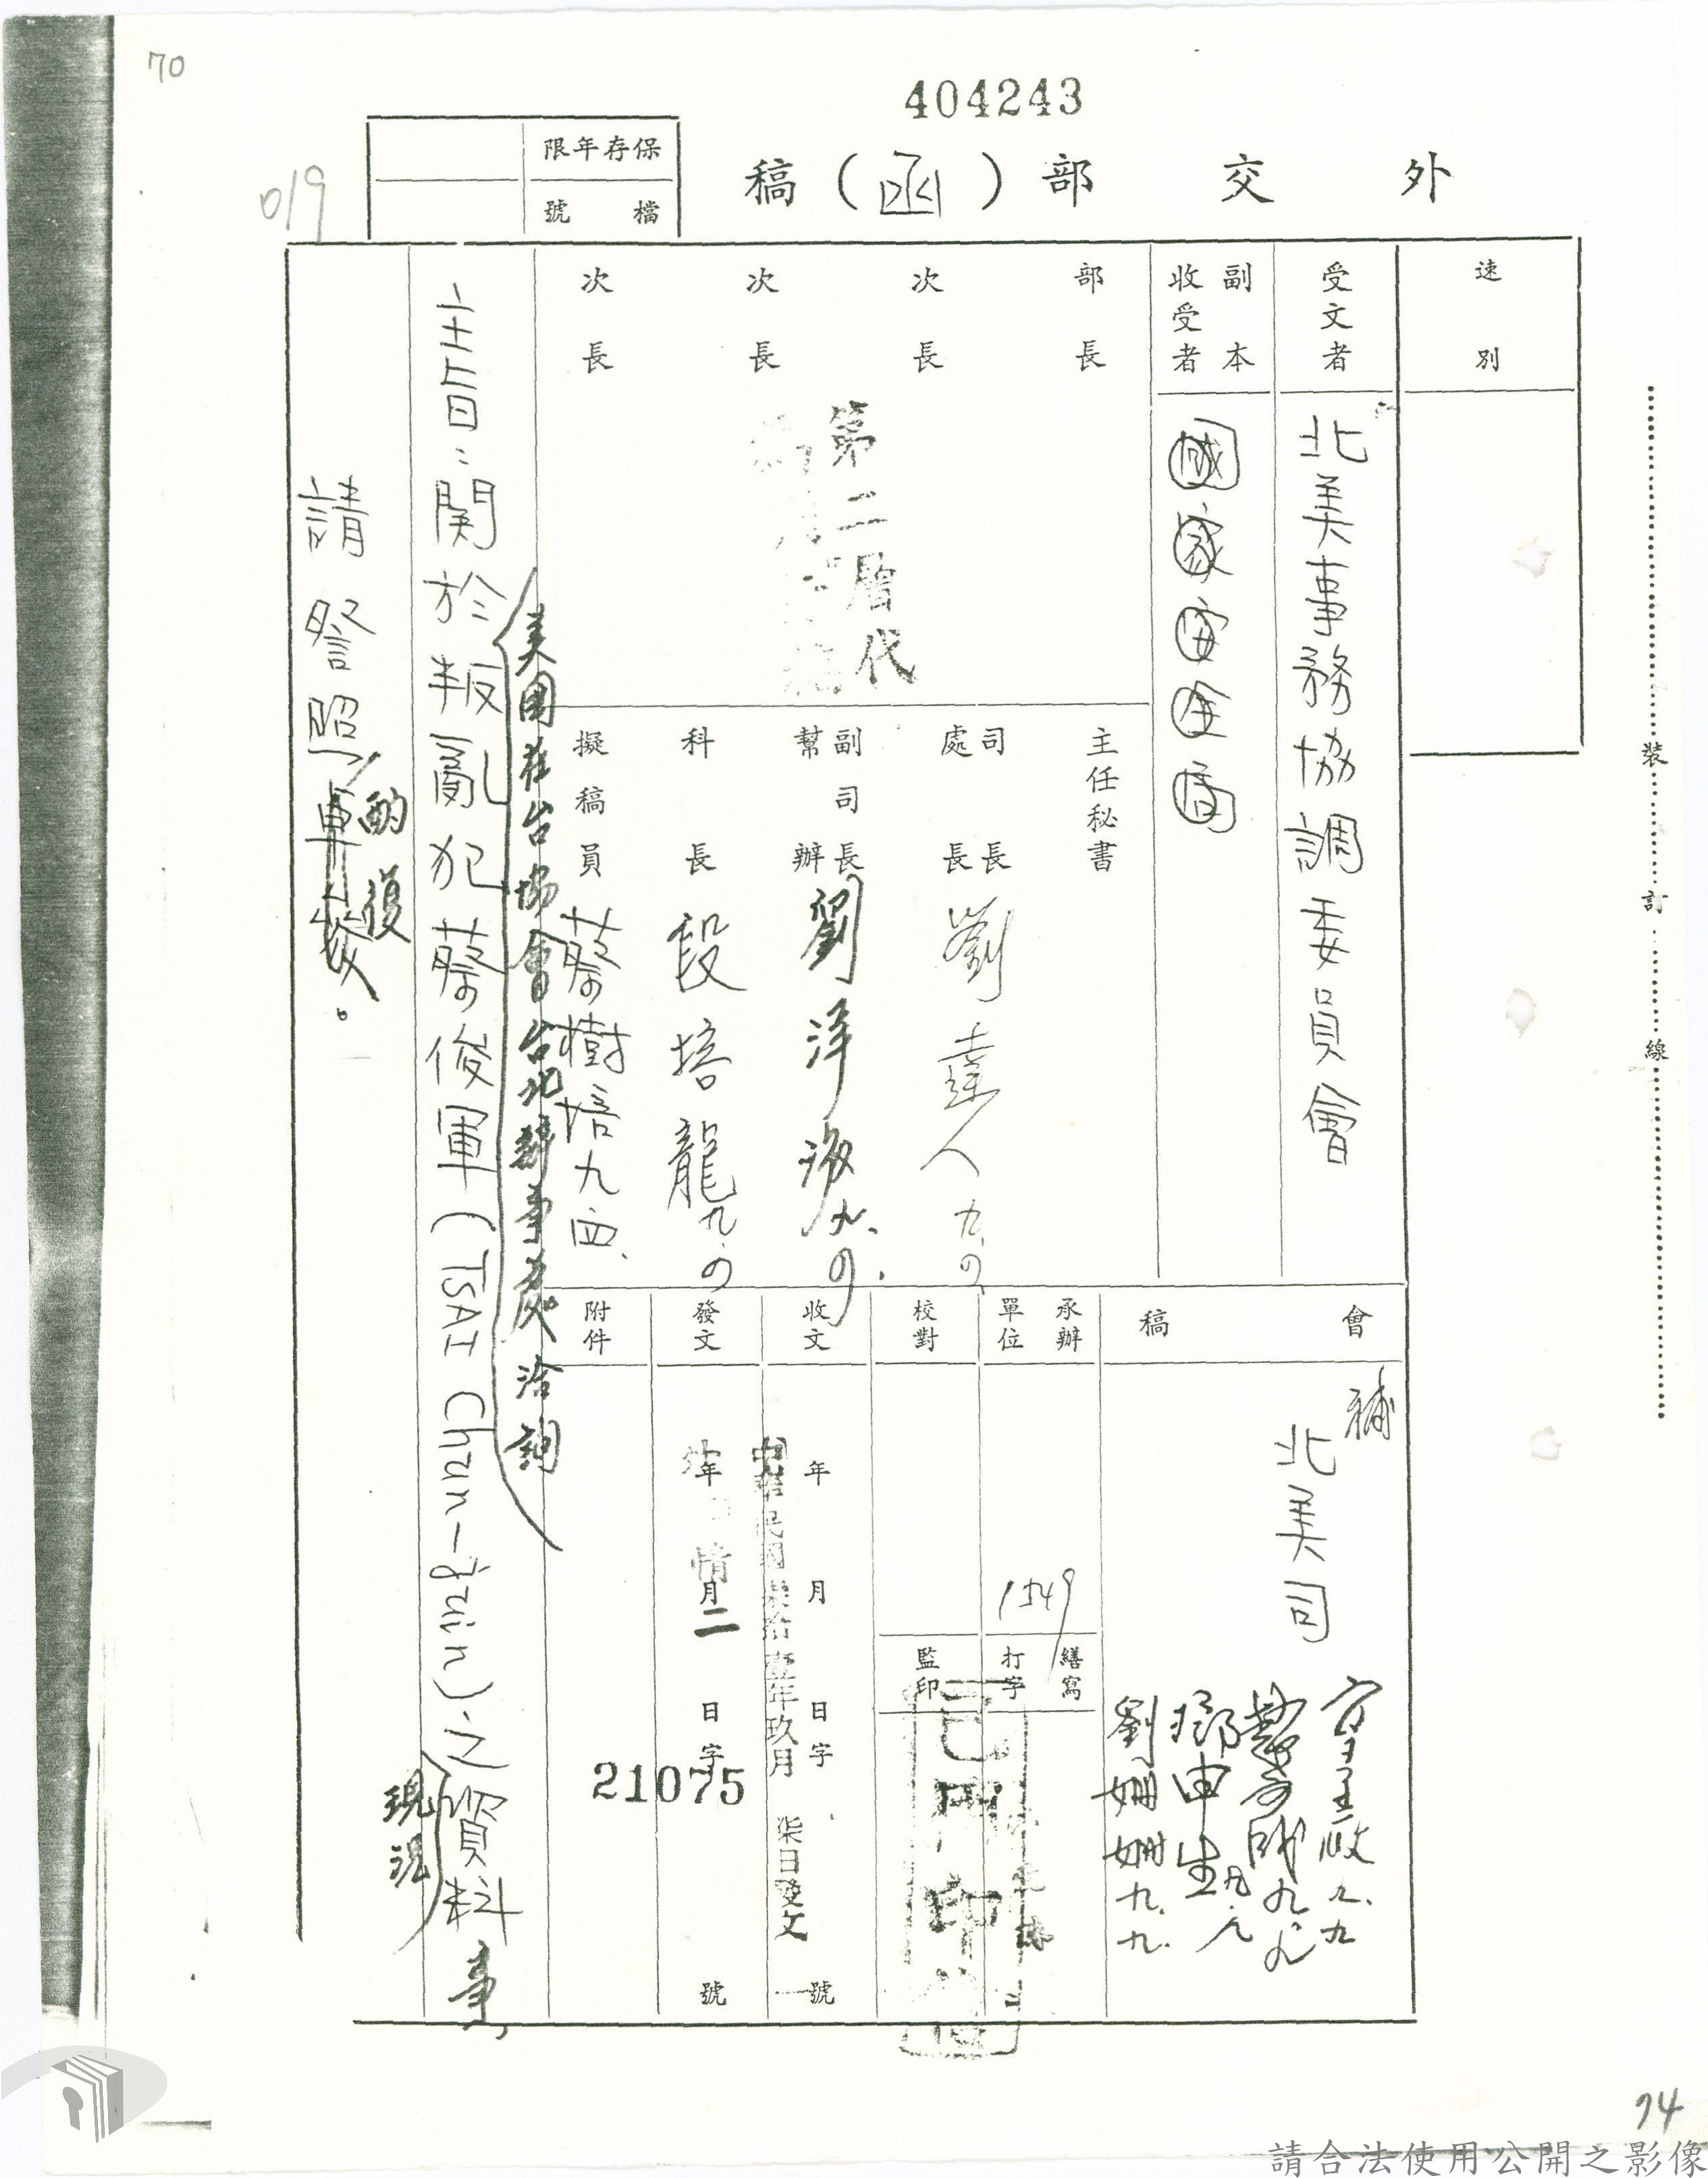 70
404243
019
保存年限
檔號
外交部（函）稿
速別
受文者
北美事務協調委員會
副本收受者
國家安全局
部長
次長
次長
次長
第二層代
主任秘書
司長
處長
劉達人 九.の
副司長
幫辦
劉洋海 九.の.
科長
段培龍 九.の
擬稿員
蔡樹培 九四、
會稿
補
北美司
九.九
九.八
鄉申生 九.八
劉姍姍 九.九.
承辦單位
1549
繕寫
打字
校對
監印
已用印
收文
年月日字號
中華民國柒拾壹年玖月柒日發文
發文
年月日字號
情
二
21075
附件
主旨：関於叛亂犯蔡俊軍(TSAI Chun-Juin)之資料事、
美國在台協會台北辦事處洽詢
現況
請詧照
酌復
。
裝訂線
74
請合法使用公開之影像